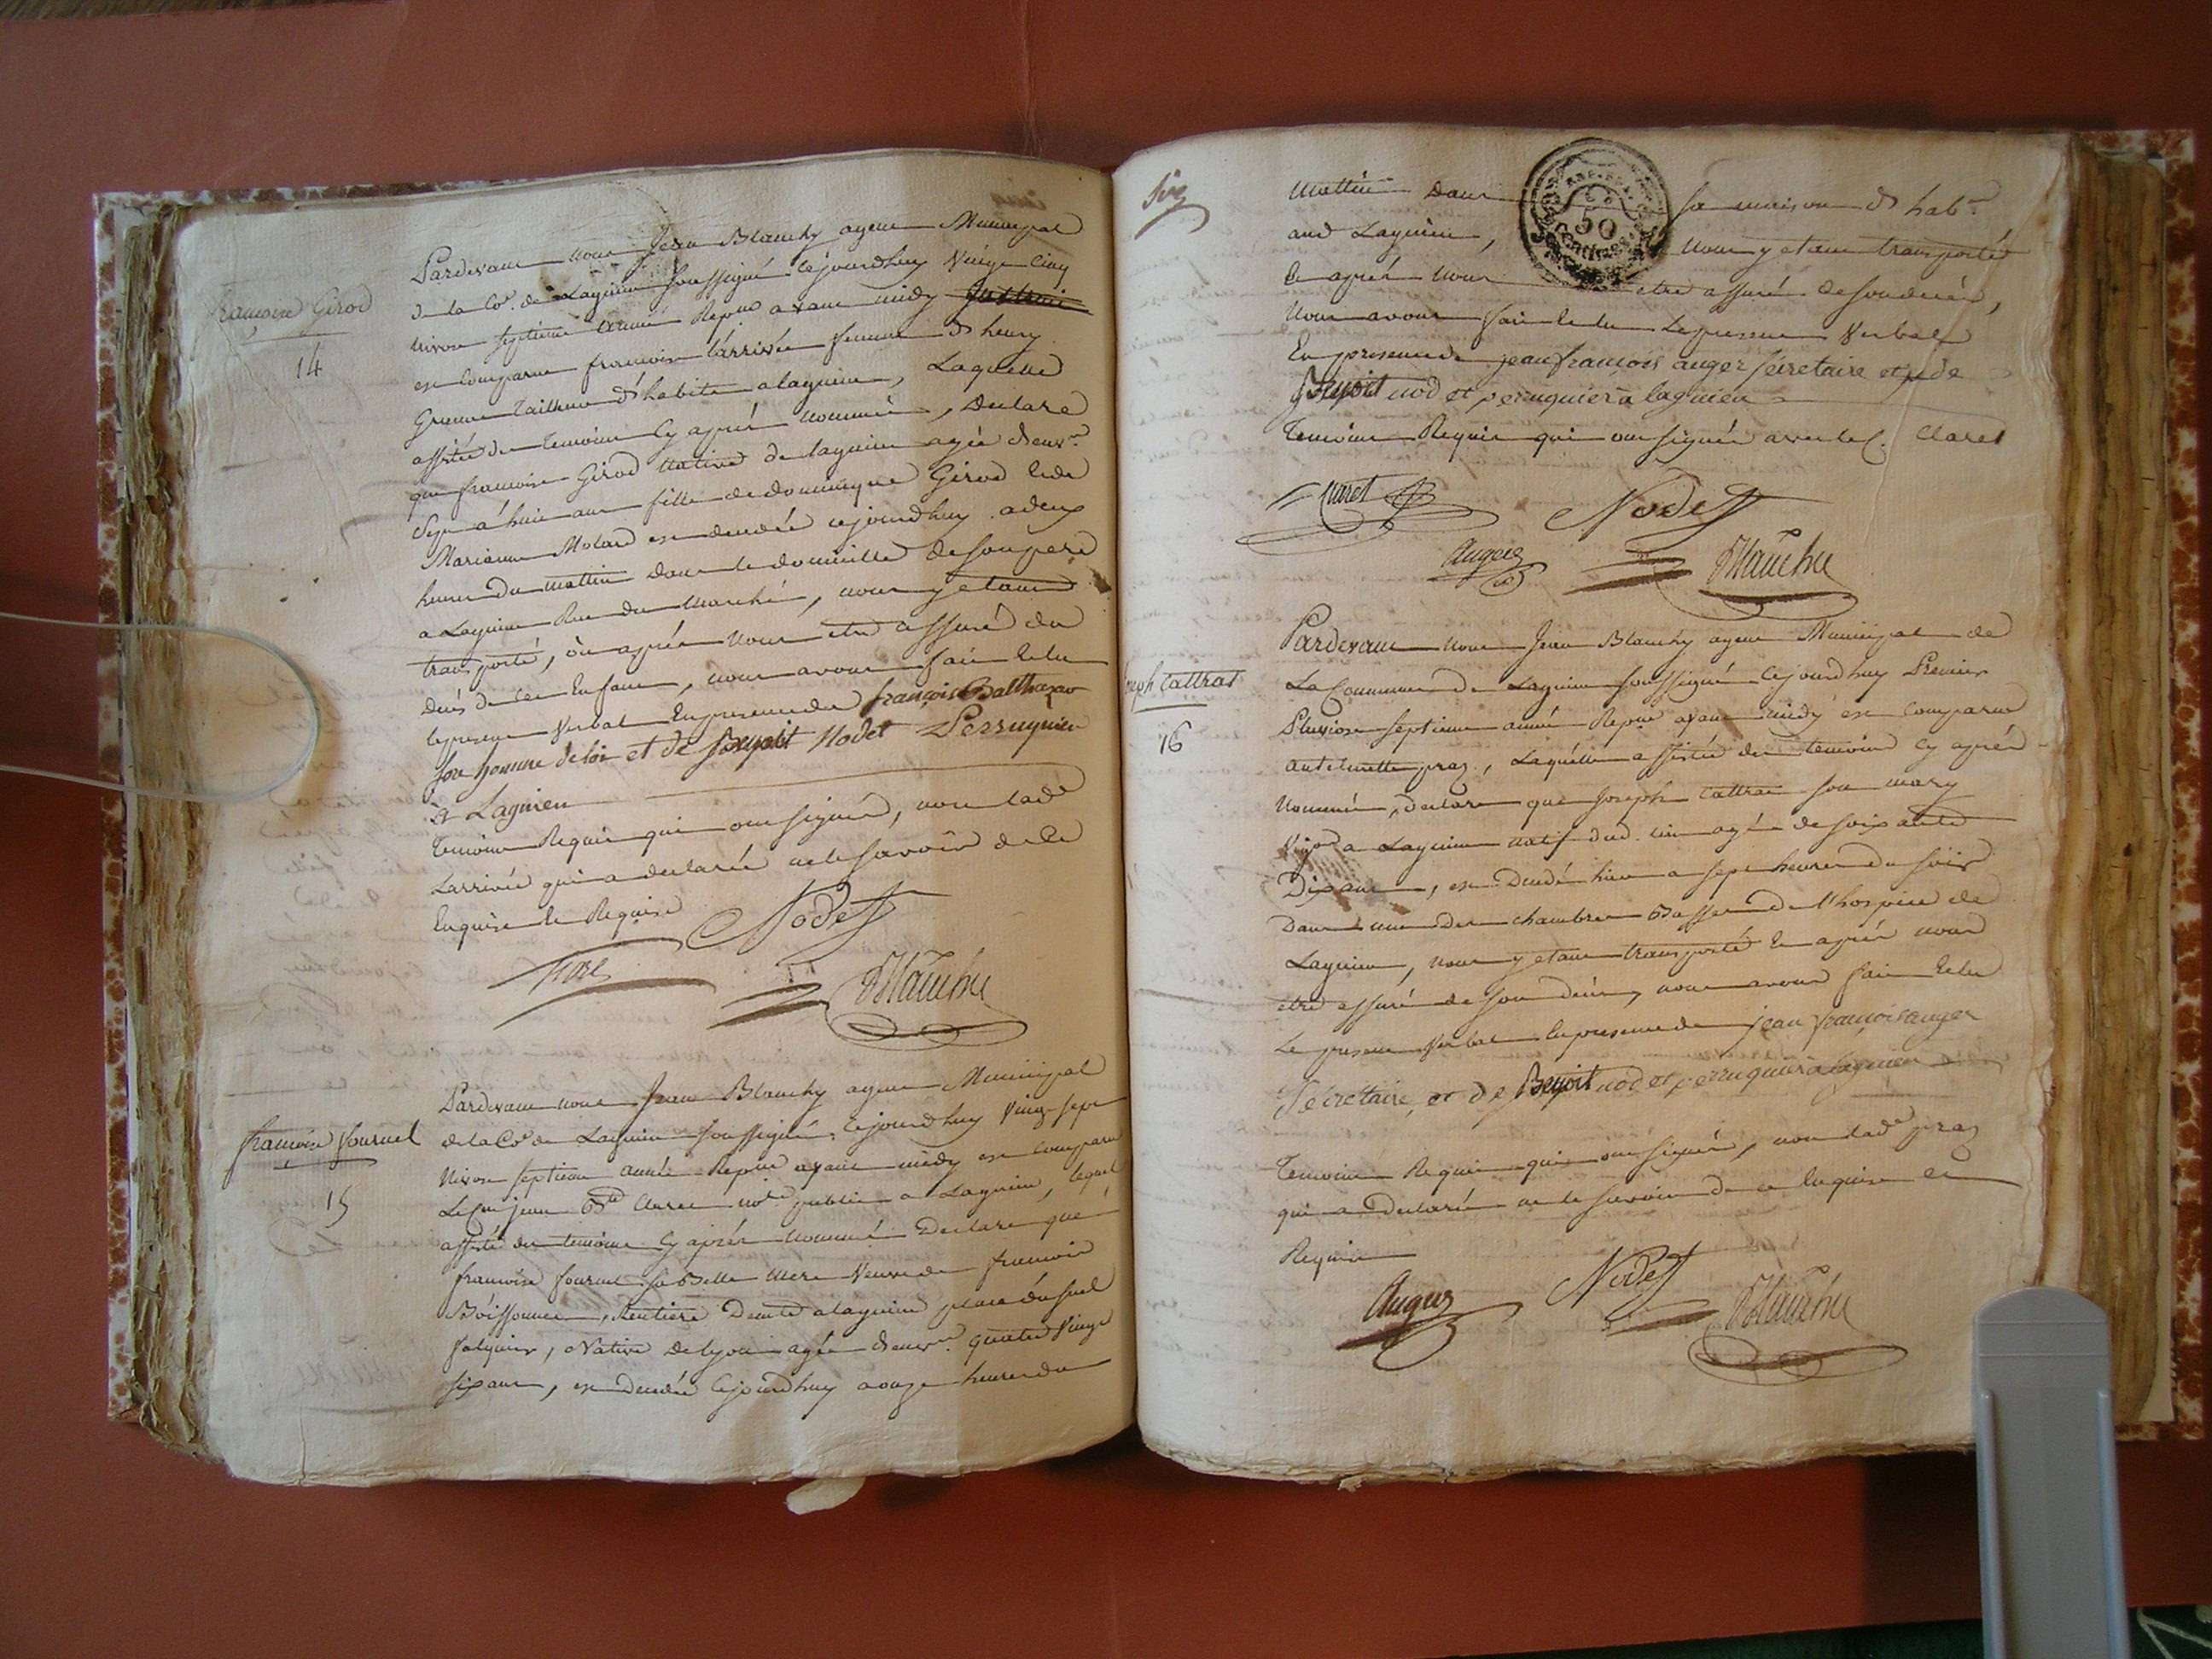 Pardevant nous Jean Blanchy agent Municipal
de la Co.e de Lagnieu soussigné cejourdhuy Vingt Cinq
françoise Girod
nivose septieme année Repue avant midy
14
est comparue francoise Larrivée femme de henry
tailleur d'habits a lagnieu, Laquelle
assistée des temoins Cy après nommés, Declare
que francoise Girod native de lagnieu agée d'env.on
Sept à huit ans fille de dominique Girod et de
Marianne Molard est decedée cejourdhuy a deux
heures du mattin dans le domicille de son pere
a Lagnieu Rue du Marché, nous y etant
transporté, où après nous etre assuré du
Decès de cet Enfant, nous avons fait et lu
le present Verbal En presence de françois Balthazar
homme de loi et de Benoit Nodet Perruquier
à Lagnieu
temoins Requis qui ont signés, non lad.e
Larrivée qui a declarée ne le savoir de ce
Enquise et Requise
Nodet
Blanchy
Pardevant nous Jean Blanchy agent Municipal
françoise fournel
de la Co.e de Lagnieu soussigné, cejourdhuy Vingt sept
Nivose septieme année Repue avant midy est comparu
15
Le C.en jean B.te Claret not.re public a Lagnieu, lequel
assisté des temoins Cy après nommés Declare que
francoise fournel sa Belle mere Veuve de francois
Rentiere Demte a lagnieu place
Native de lyon agée d'env.on quatre Vingt
six ans, est decedée cejourdhuy a onze heures du
Six
mattin dans sa maison d'hab.on
aud Lagnieu, nous y etant transporté
50
et après nous etre assuré de son decès,
nous avons fait et lu le present Verbal
En presence de jean françois auger secretaire et de
Benoit nodet perruquier à lagnieu
temoins Requis qui ont signés avec le C. Claret
Claret
Nodet
Auger
Blanchy
Pardevant nous Jean Blanchy agent Municipal de
Joseph Cattrat
La Commune de Lagnieu soussigné Cejourdhuy Premier
Pluviose septieme année Repue avant midy est comparue
16
praz, Laquelle assistée des temoins Cy après
Nommés, declare que Joseph Cattrat son mary
a Lagnieu natif dud. lieu agé de soixante
Dix ans, est Decedé hier a sept heures du soir
Dans une des chambres Basses de l'hospice de
Lagnieu, nous y etant transporté et après nous
etre assuré de son decès, nous avons fait et lu
Le present Verbal En presence de jean françois auger
Secretaire, et de Benoit nodet perruquier à lagnieu
temoins Requis qui ont signés, non lad.e praz
qui a Declaré ne le savoir de ce Enquise et
Requise
Auger
Nodet
Blanchy